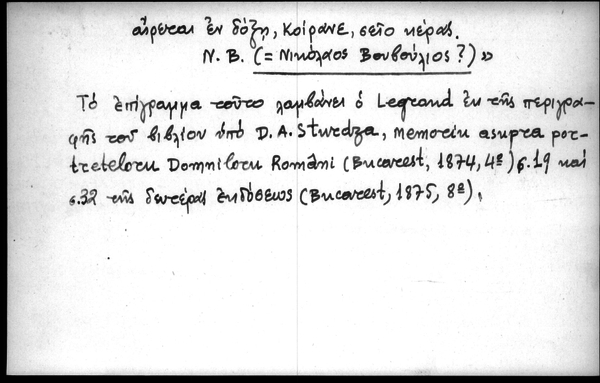 αἴρεται ἐν δόξῃ, Κοίρανε, σεῖο κέρας.
Ν. Β. (= Νικόλαος Βουβούλιος ?) »
Τό ἐπίγραμμα τοῦτο λαμβάνει ὁ Legrand ἐκ τῆς περιγρα-
φῆς τοῦ βιβλίου ὑπό D. A. Sturdza, Memoriu asupra por-
treteloru Domniloru Români (Bucarest, 1874, 4º) σ. 19 καί
σ. 32 τῆς δευτέρας ἐκδόσεως (Bucarest, 1875, 8º).